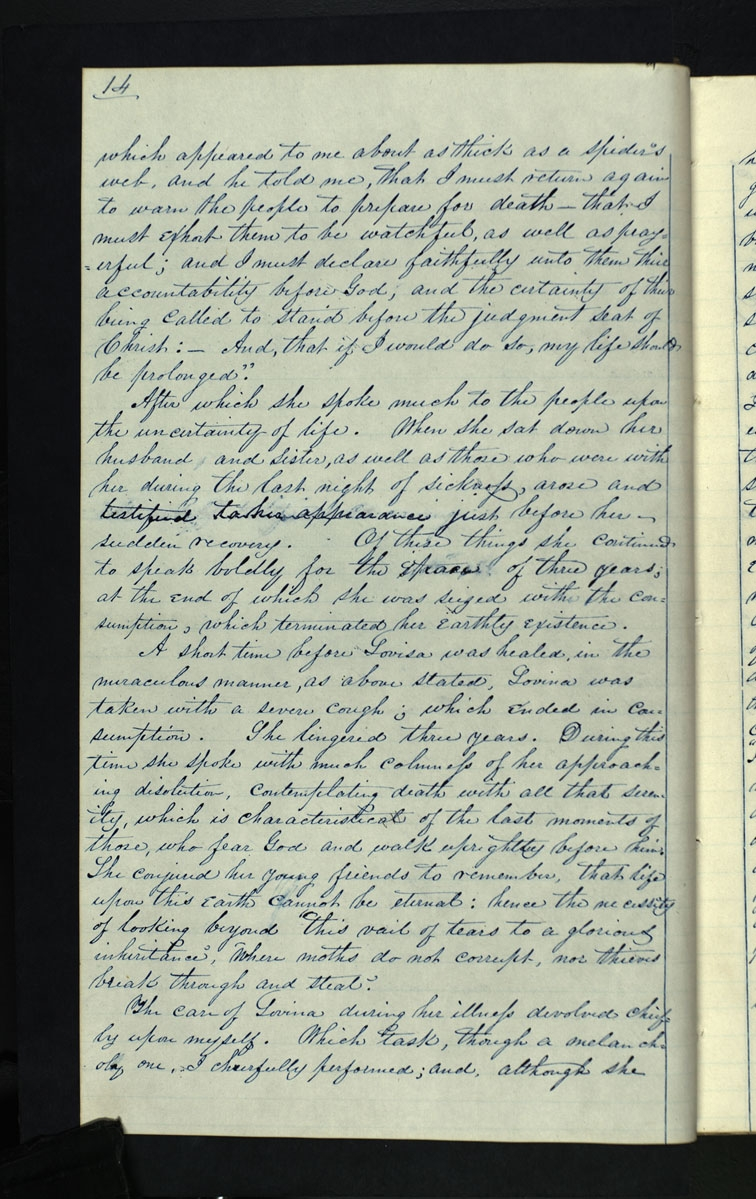 14
which appeared to me about as thick as a spider's
web, and he told me, that I must return again
to warn the people to prepare for death — that I
must exhort them to be watchful, as well as pray
=erful; and I must declare faithfully unto them thier
accountability before God; and the certainty of thier
being called to stand before the judgment seat of
Christ: — And, that if I would do so, my life should
be prolonged".
After which she spoke much to the people upon
the uncertainty of life. When she sat down her
husband and sister, as well as those who were with
her during the last night of sickness, arose and
testified to her appearance just before her
sudden recovery. Of these things she continued
to speak boldly for the space of three years;
at the end of which she was seized with the con=
sumption; which terminated her earthly existence.
A short time before Lovisa was healed, in the
miraculous manner, as above stated, Lovina was
taken with a severe cough; which ended in con=
sumption. She lingered three years. During this
time she spoke with much calmness of her approach=
ing disolution, contemplating death with all that seren=
ity, which is characteristical of the last moments of
those, who fear God and walk uprightly before him.
She conjured her young friends to remember, that life
upon this earth cannot be eternal: hence the necessity
of looking beyond this vail of tears to a glorious
inheritance, "Where moths do not corrupt, nor thieves
break through and steal".
The care of Lovina during her illness devolved chief=
ly upon myself. Which task, though a melanch=
oly one, I cheerfully performed; and, although she